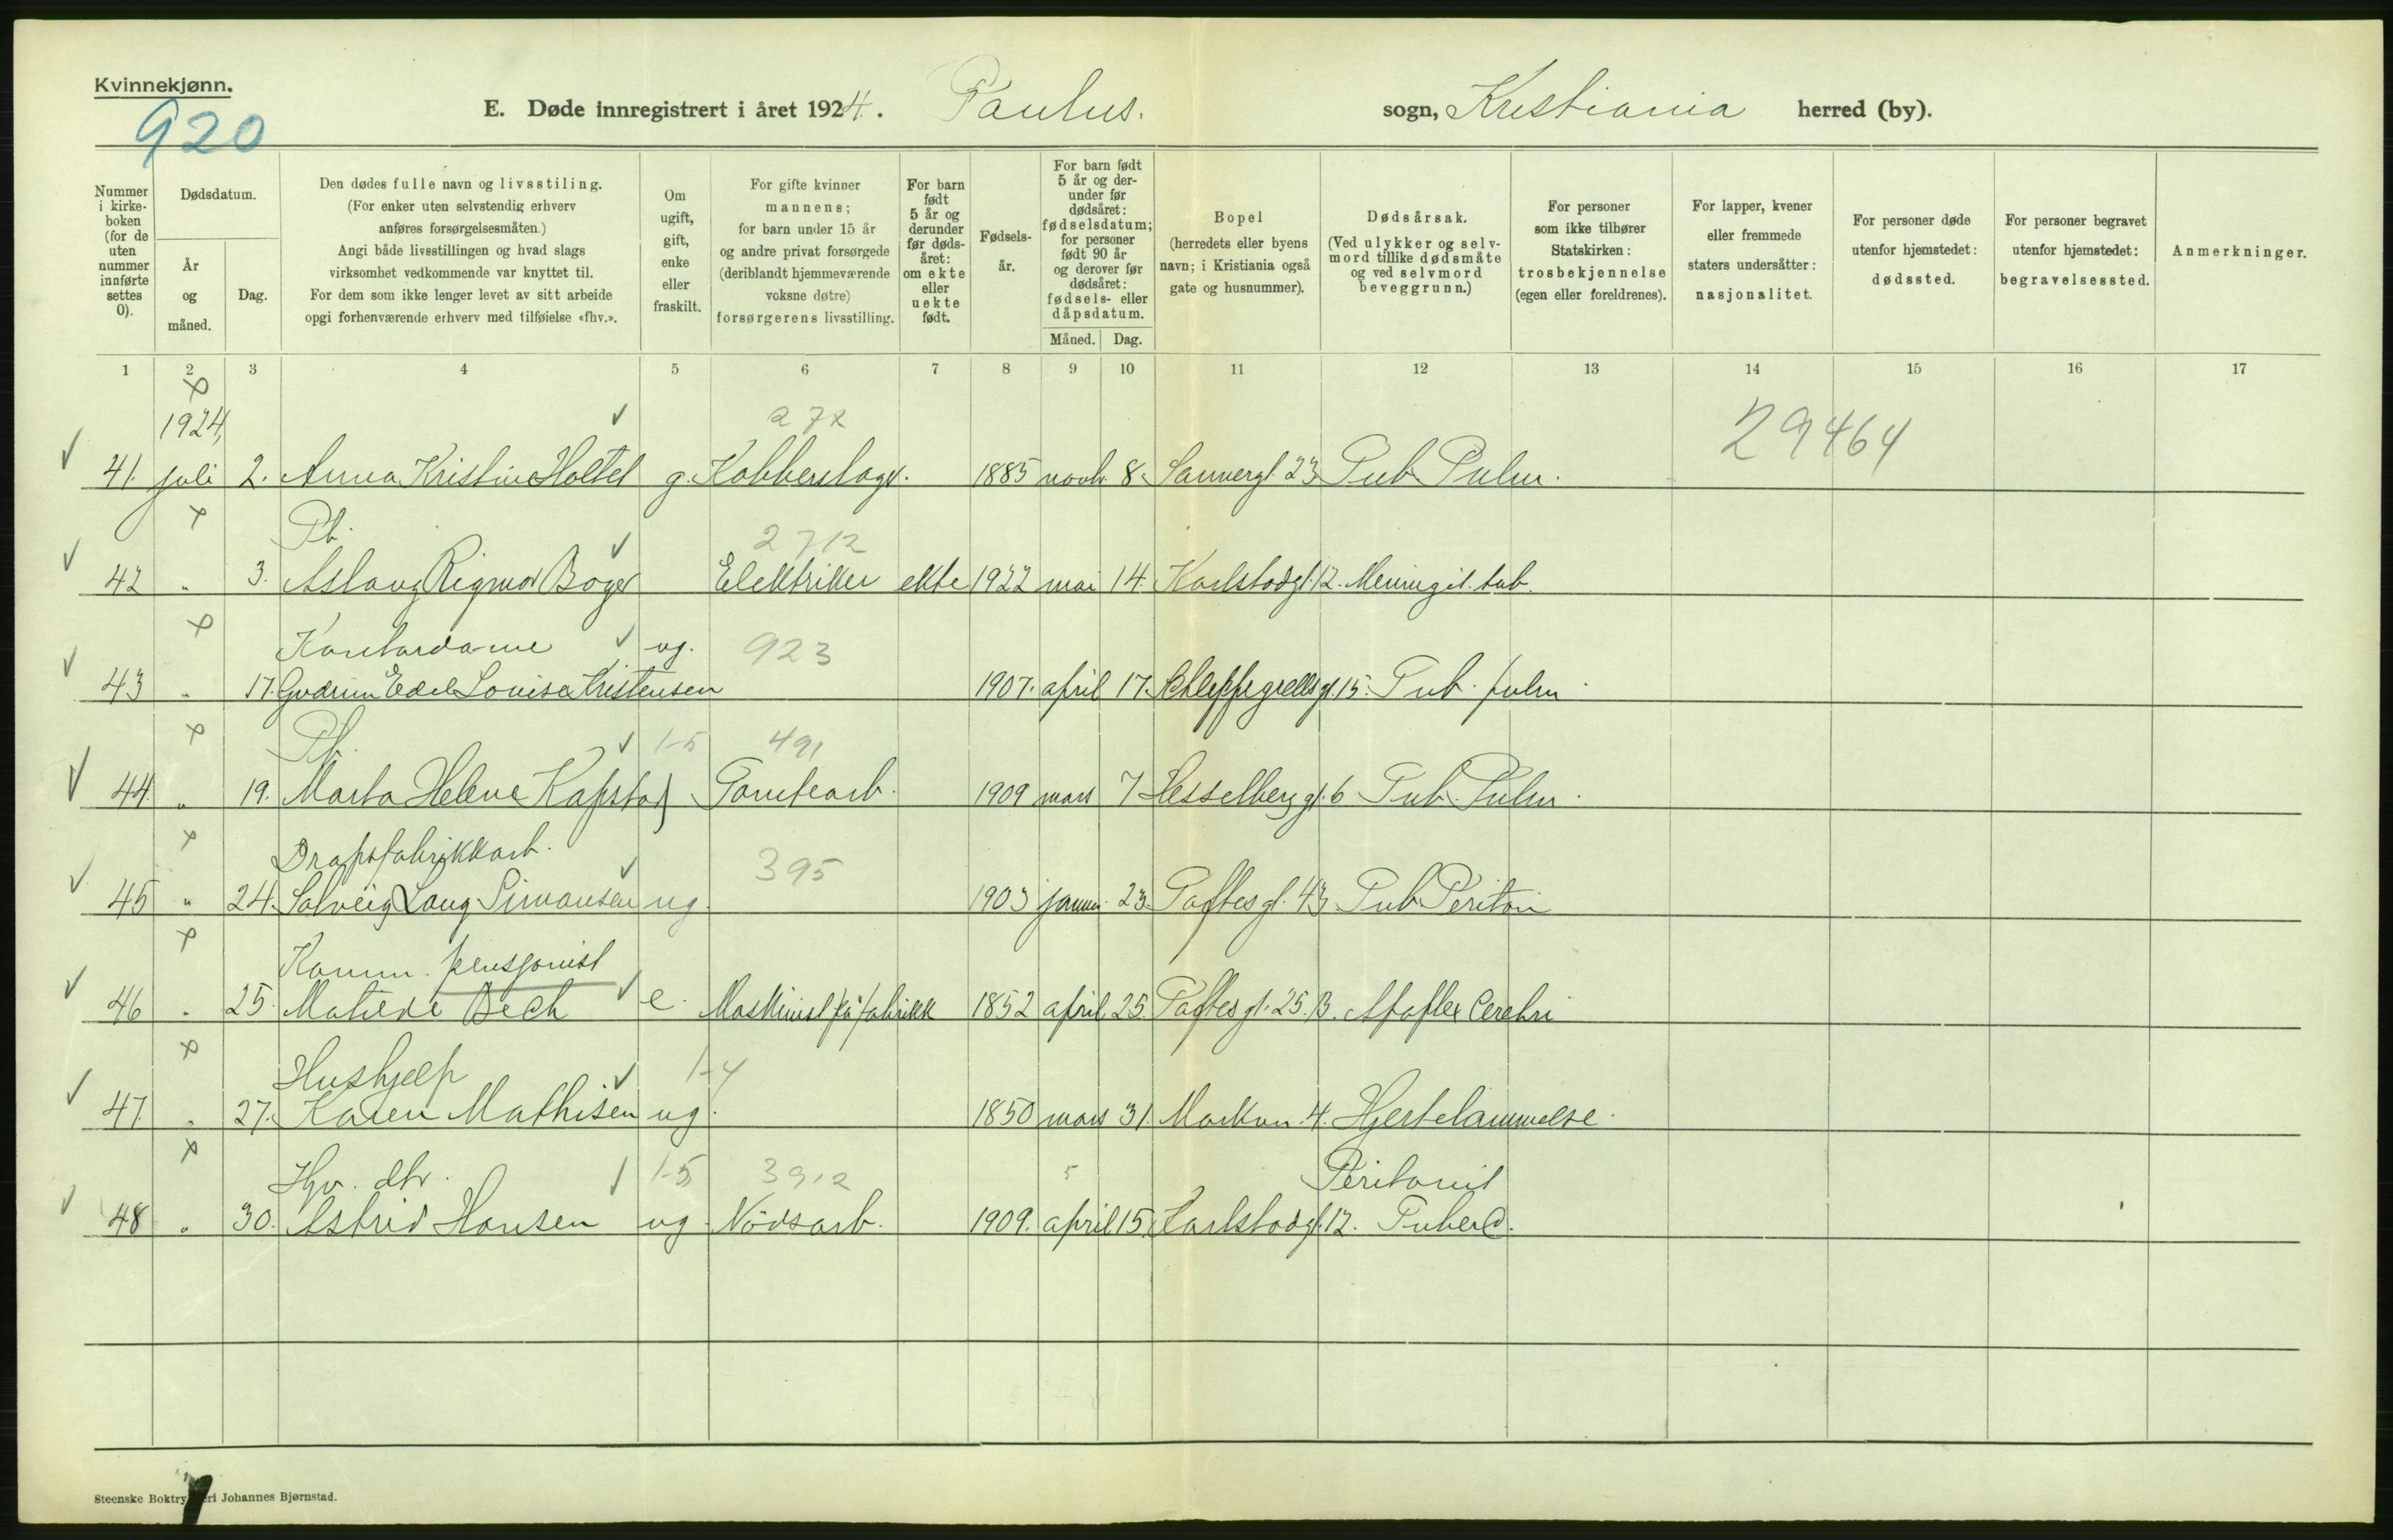 Kvinnekjønn.
920
E. Døde innregistrert i året 1924. Paulus. sogn, Kristiania herred (by).
Nummer i kirke-boken (for de uten nummer innførte settes 0).
Dødsdatum.
År og måned.
Dag.
Den dødes fulle navn og livsstiling.
(For enker uten selvstendig erhverv
anføres forsørgelsesmåten.)
Angi både livsstillingen og hvad slags
virksomhet vedkommende var knyttet til.
For dem som ikke lenger levet av sitt arbeide
opgi forhenværende erhverv med tilføielse «fhv.».
Om ugift, gift, enke eller fraskilt.
For gifte kvinner
mannens;
for barn under 15 år
og andre privat forsørgede
(deriblandt hjemmeværende
voksne døtre)
forsørgerens livsstilling.
For barn født 5 år og derunder før døds-året: om ekte eller uekte født.
Fødsels-år.
For barn født
5 år og der-
under før
dødsåret:
fødselsdatum;
for personer
født 90 år
og derover før
dødsåret:
fødsels- eller
dåpsdatum.
Måned. Dag.
Bopel
(herredets eller byens
navn; i Kristiania også
gate og husnummer).
Dødsårsak.
(Ved ulykker og selv-
mord tillike dødsmåte
og ved selvmord
beveggrunn.)
For personer
som ikke tilhører
Statskirken:
trosbekjennelse
(egen eller foreldrenes).
For lapper, kvener
eller fremmede
staters undersåtter:
nasjonalitet.
For personer døde
utenfor hjemstedet:
dødssted.
For personer begravet
utenfor hjemstedet:
begravelsessted.
Anmerkninger.
1 2 3 4 5 6 7 8 9 10 11 12 13 14 15 16 17
1924, 272 29464
41. juli 2. Anna Kristine Holtet g. Kobberslag. 1885 novb. 8. Sannergt. 23 Tub. Pulm.
Pb. 2712
42 " 3. Aslaug Rigmor Boger Elektriker ekte 1922 mai 14. Karlstadgt. 12. Meningit. tub.
Kontordame ug. 923
43 " 17. Gudrun Edel Louise Kristensen 1907. april 17. Schleppegrellsgt. 15. Tub. pulm.
Pb. 1-5 491
44. " 19. Marta Helene Kapstad Tomtearb. 1909 mars 7 Hesselberggt. 6 Tub. Pulm.
Dropsfabrikkarb. 395
45 " 24. Solveig Laug Simonsen ug. 1903 januar. 23. Toftesgt. 43. Tub. Periton
Komm. pensjonist
46 " 25. Matilde Bech e. Maskinist på fabrikk 1852 april 25. Toftesgt. 25. B. Apoplex Cerebri
Hushjelp 1-4
47. " 27. Karen Mathisen ug. 1850 mars 31. Markvn. 4. Hjertelammelse.
Hjv. dtr. 1-5 3912 5 Peritonit
48 " 30. Astrid Hansen ug. Nödsarb. 1909. april 15. Karlstadgt. 12. Tubercl.
Steenske Boktrykkeri Johannes Bjørnstad.